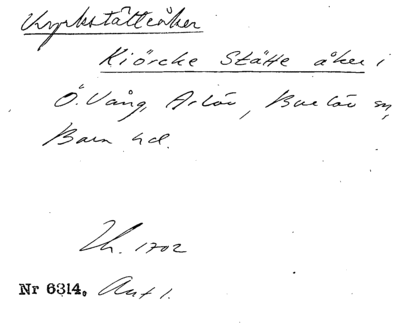 Kyrkstätteåker
Kiörcke Stätte åker i
Ö. Vång, Arlöv, Burlöv sn,
Bara hd.
Lh. 1702
Nr 6314. Ant 1.